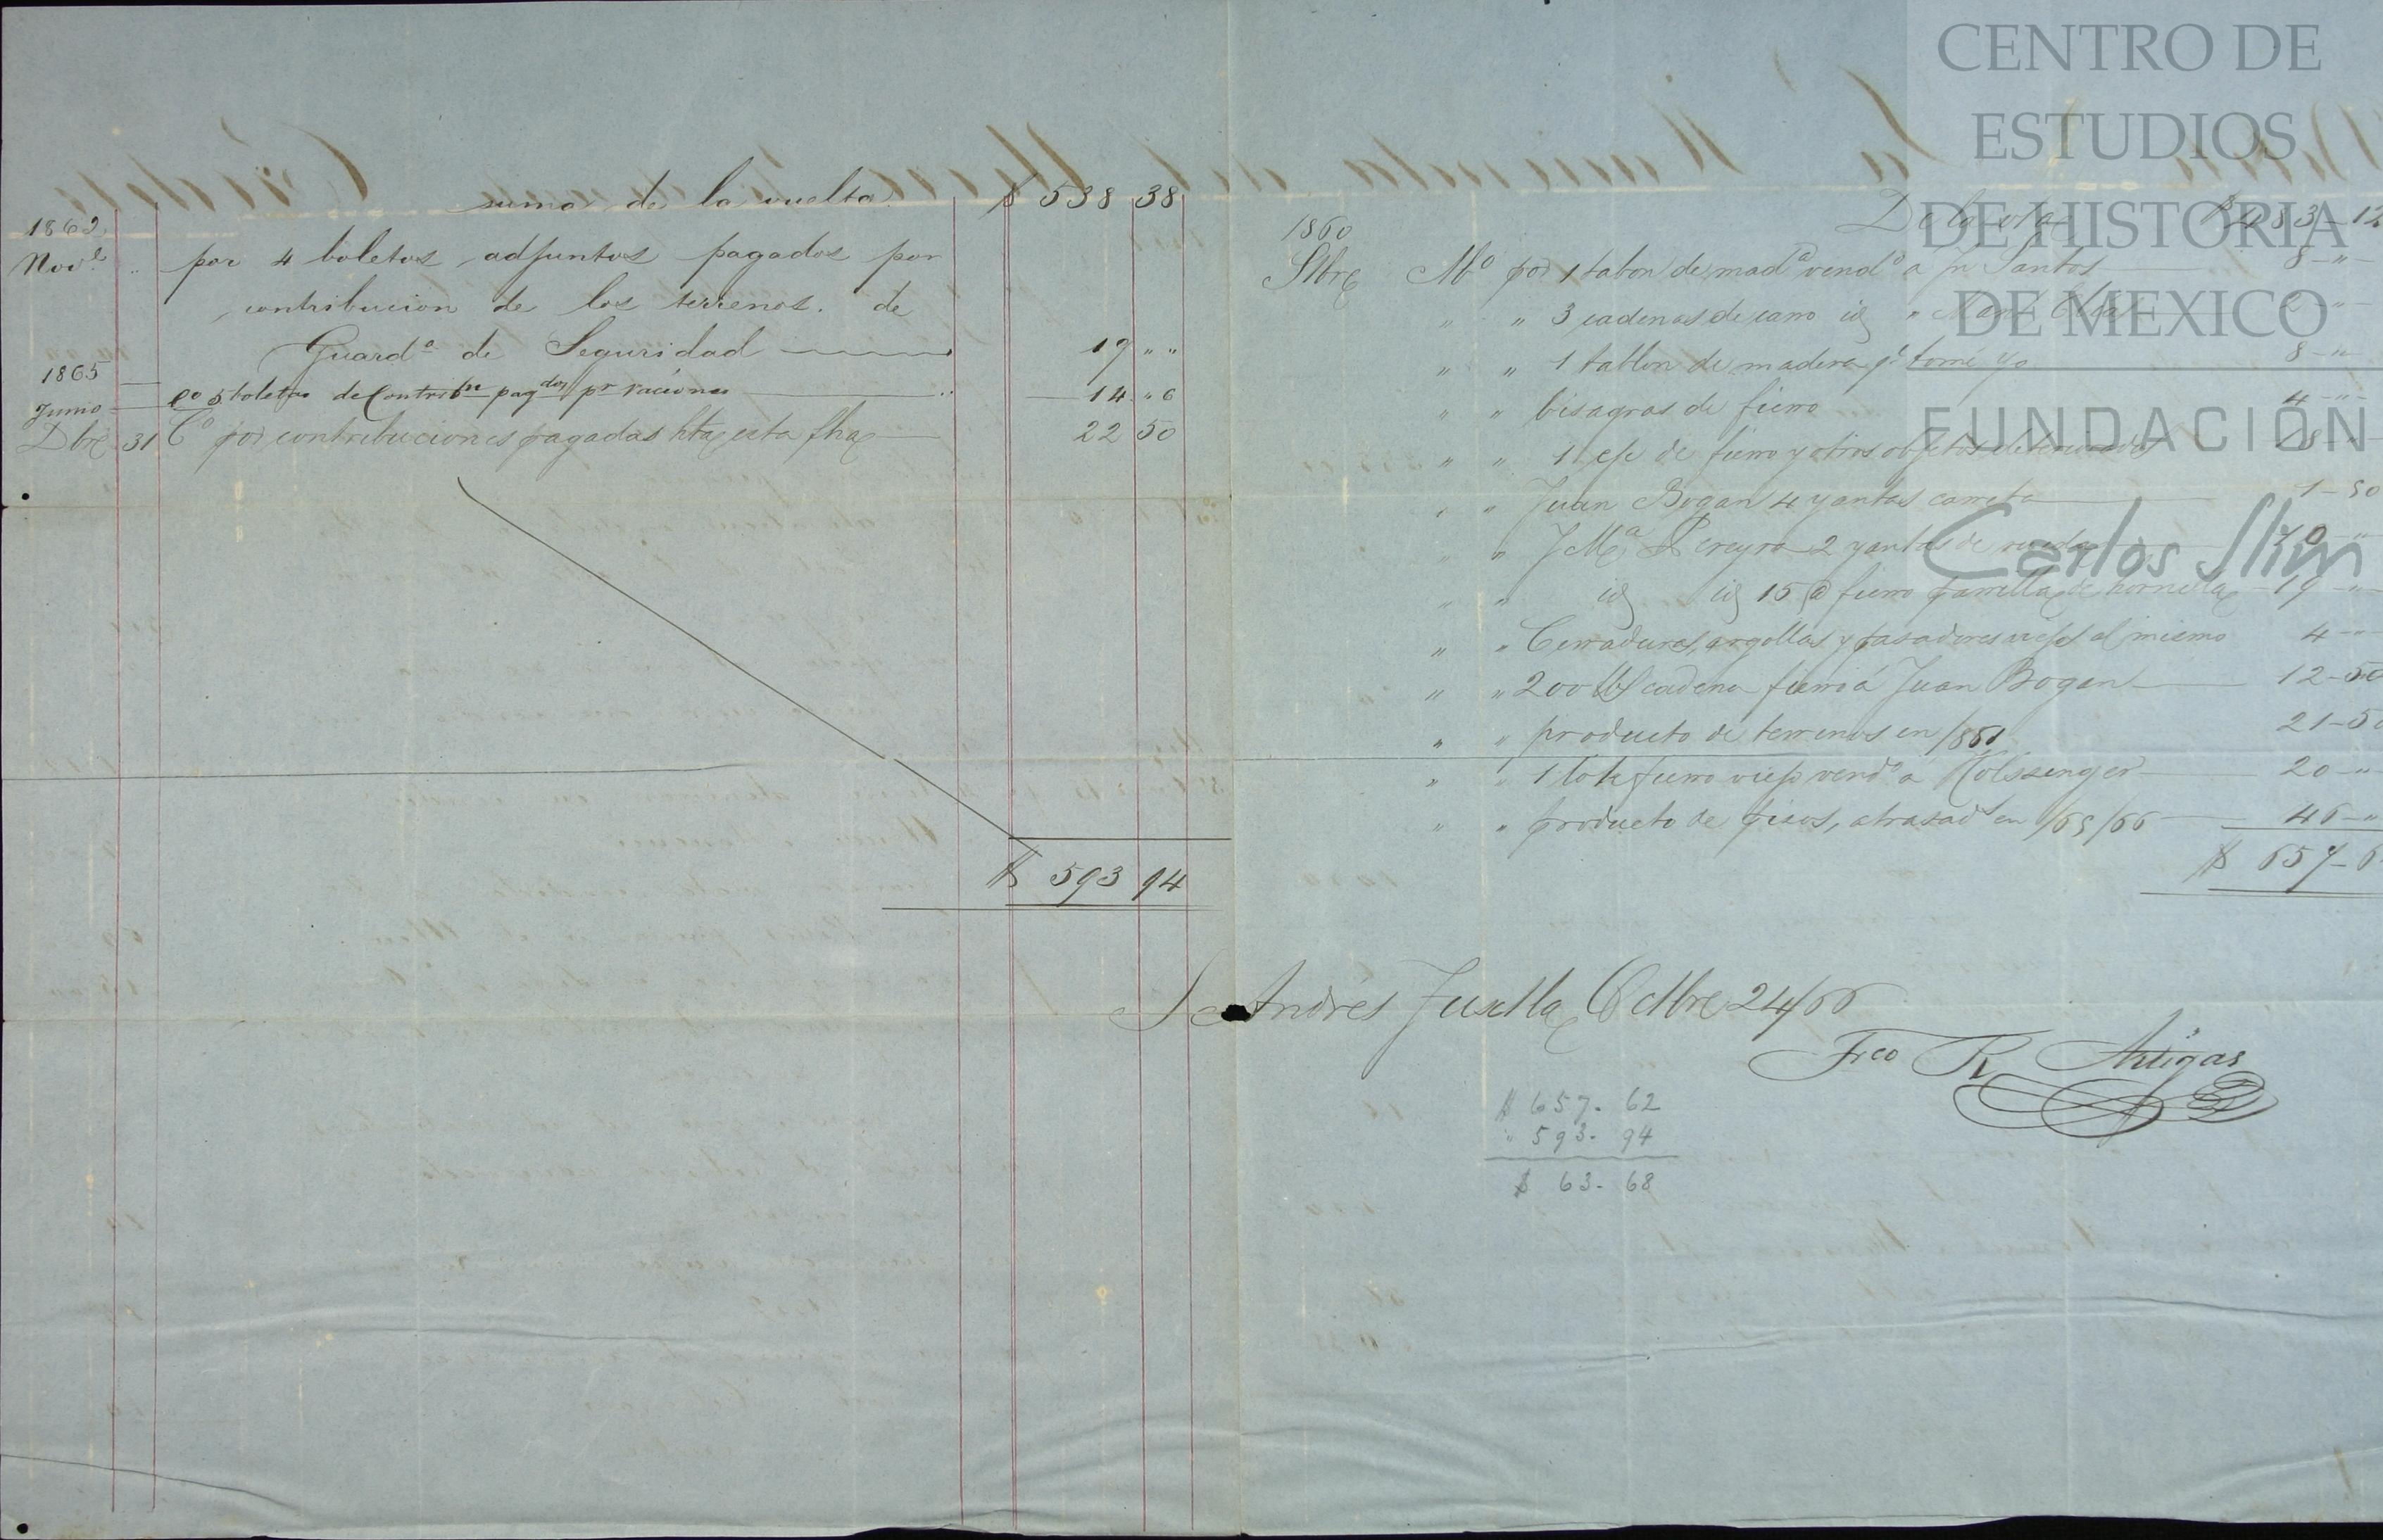 suma de la vuelta $ 538 38
1862
Nov.e " por 4 boletos adjuntos pagados por
contribucion de los terrenos. de
Guard.a de Seguridad 19 " "
1865
Junio Co 5 boletas de Contribn pagdas pr raciones 14 " 6
Dbre 31 Co por contribuciones pagadas hta esta fha 22 50
$ 593 94
De la vta $ 483-12
1860
Stbre Mo por 1 tabon de mada vendo a Jn Santos 8-"-
" " 3 cadenas de carro id " 2 "-
" " 1 tablon de madera qe tomé yo 8-"-
" " bisagras de fierro 4-"-
" " 1 eje de fierro y otros objetos 18-"-
" " Juan Bogan 4 yantas carreta 1-50
" " J Ma Pereyra 2 yantas de ruedas "
" " id id 15 @ fierro parrilla de hornilla 19-"-
" " Cerraduras, argollas y pasadores viejos al mismo 4-"-
" " 200 lbs cadena fierro á Juan Bogan 12-50
" " producto de terrenos en /861 21-50
" " 1 lote fierro viejo vendo a Holszinger 20-"-
" " producto de pisos, atrasads en /65/66 46-"
$ 657-6
Sn Andrés Tuxtla Octbre 24/66
Frco R Artigas
$ 657. 62
" 593. 94
$ 63. 68
CENTRO DE
ESTUDIOS
DE HISTORIA
DE MEXICO
FUNDACIÓN
Carlos Slim